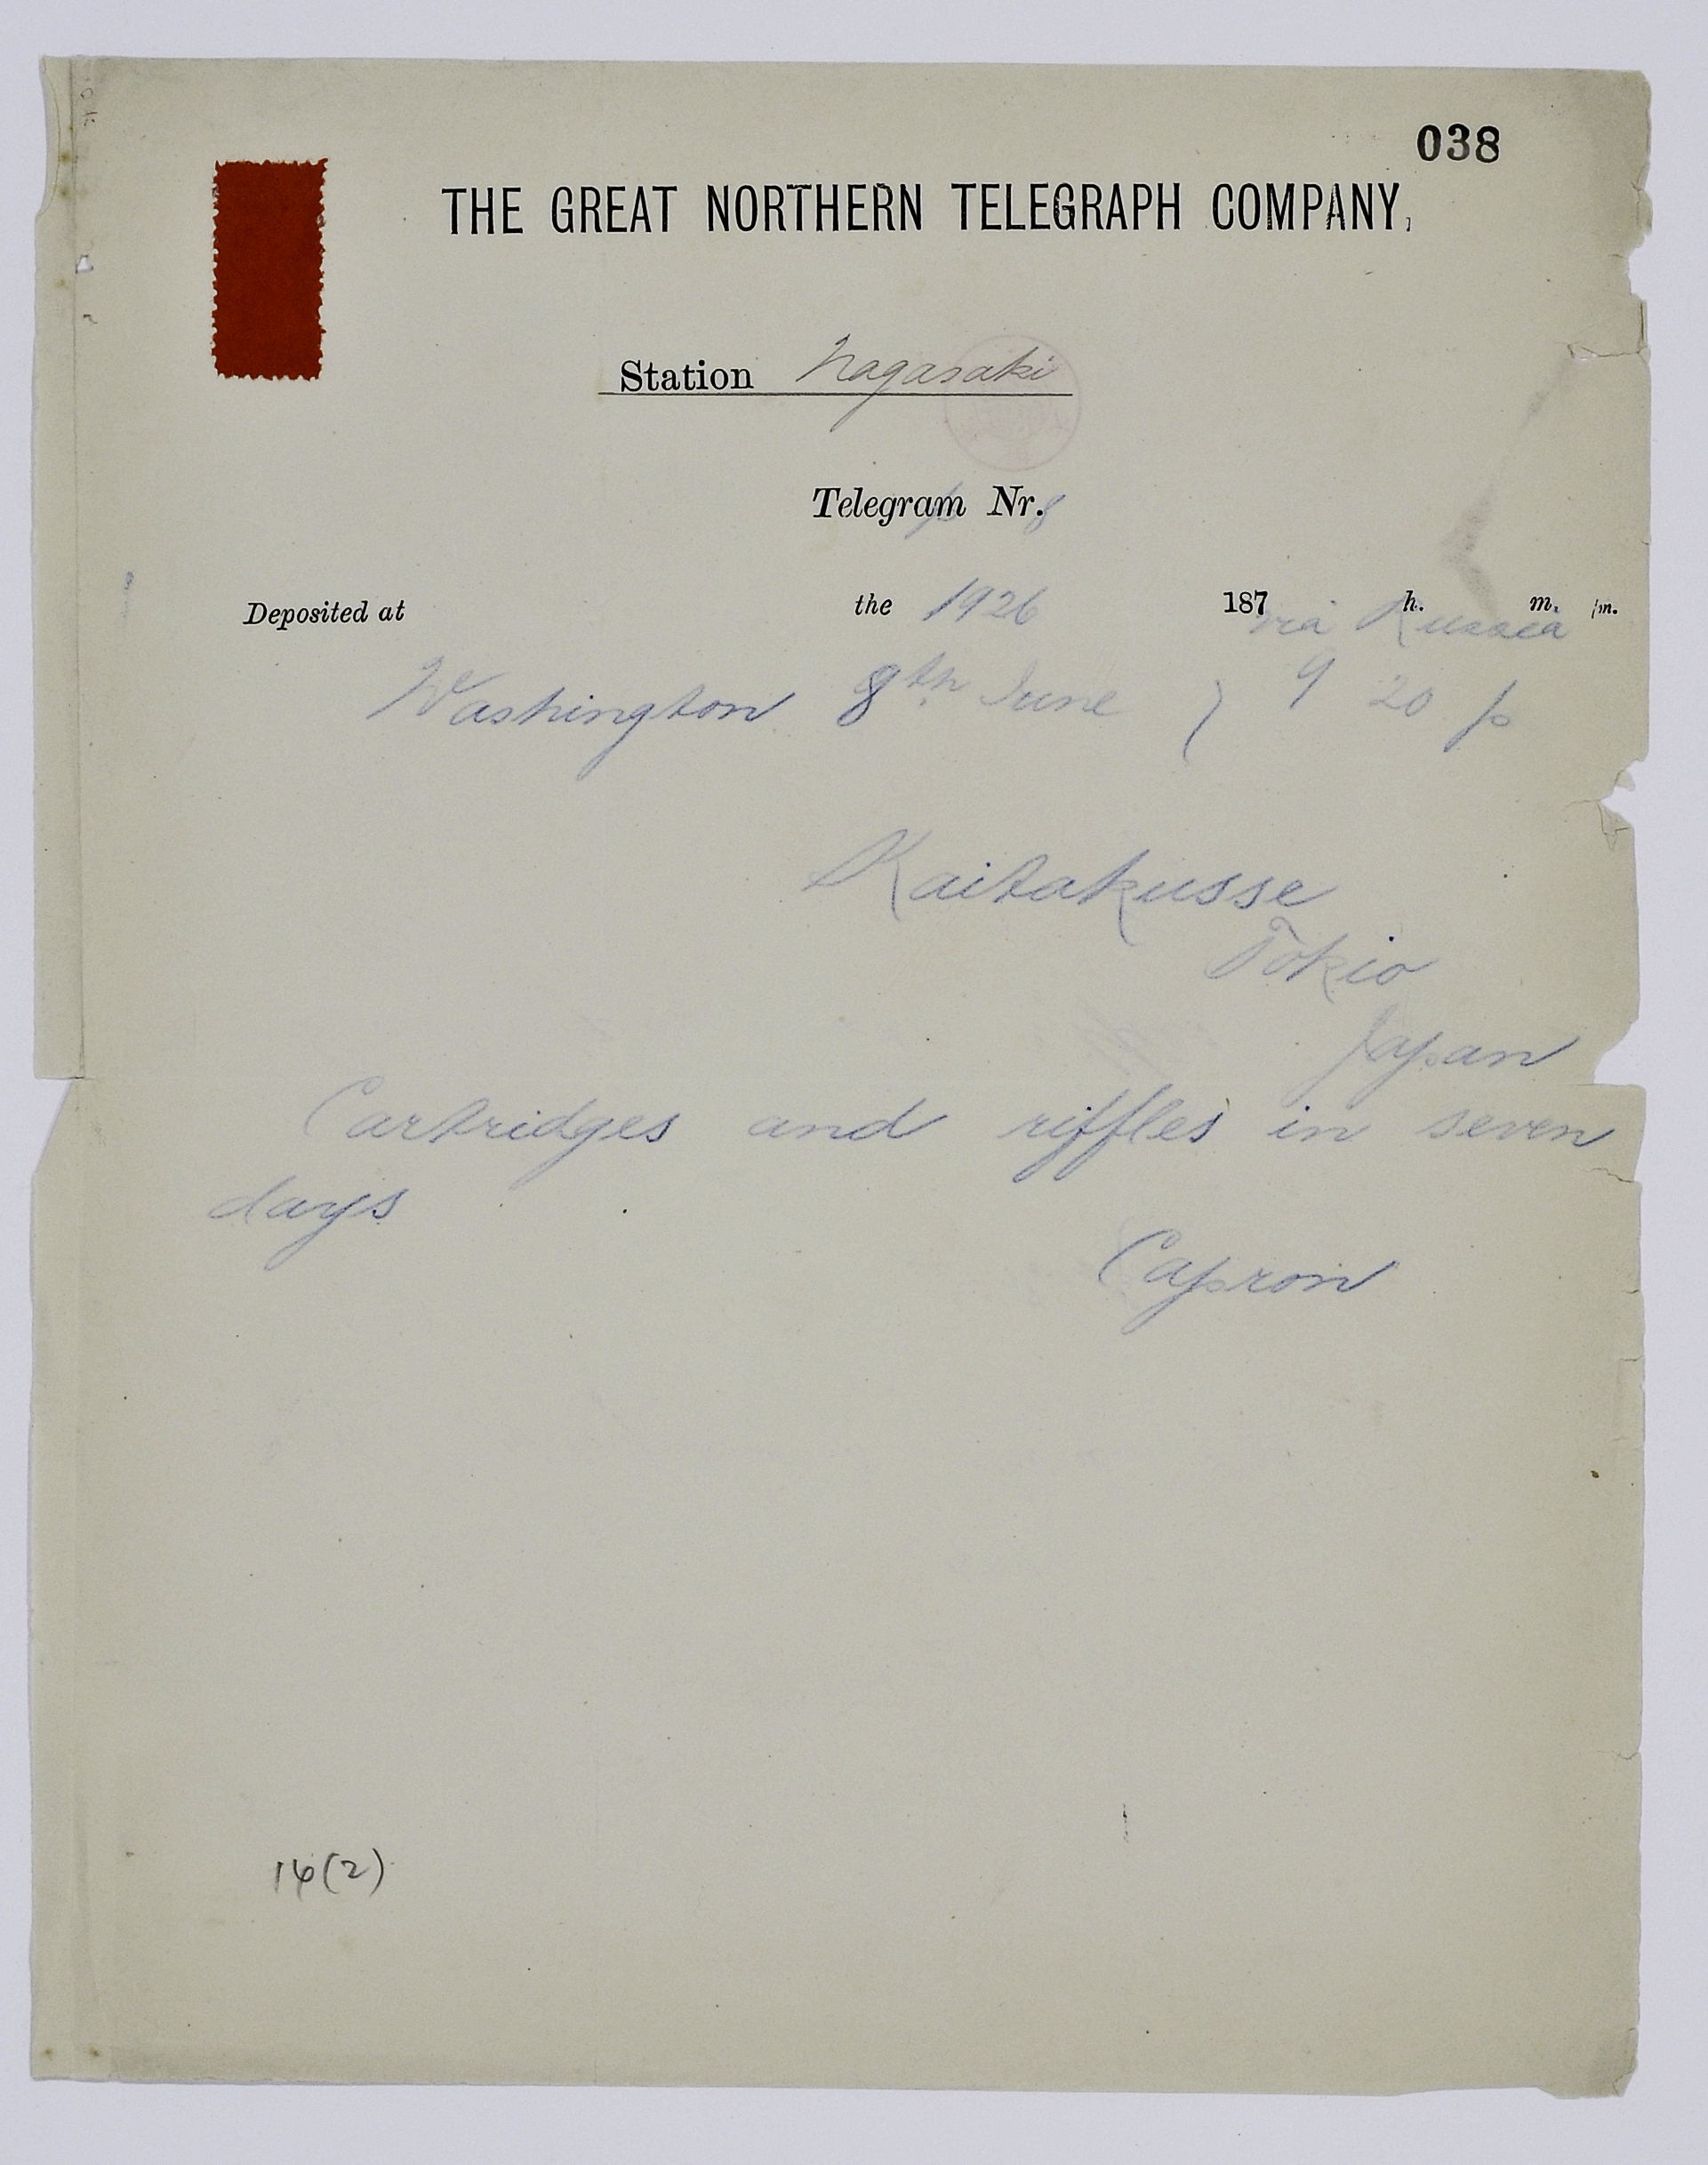 038
THE GREAT NORTHERN TELEGRAPH COMPANY,
Station Nagasaki
Telegram Nr. 8
Deposited at the 1926 187 h. m. /m.
via Russia
Washington 8th June } 9 20 p
Kaitakusse
Tokio
Japan
Cartridges and riffles in seven
days
Capron
14(2)